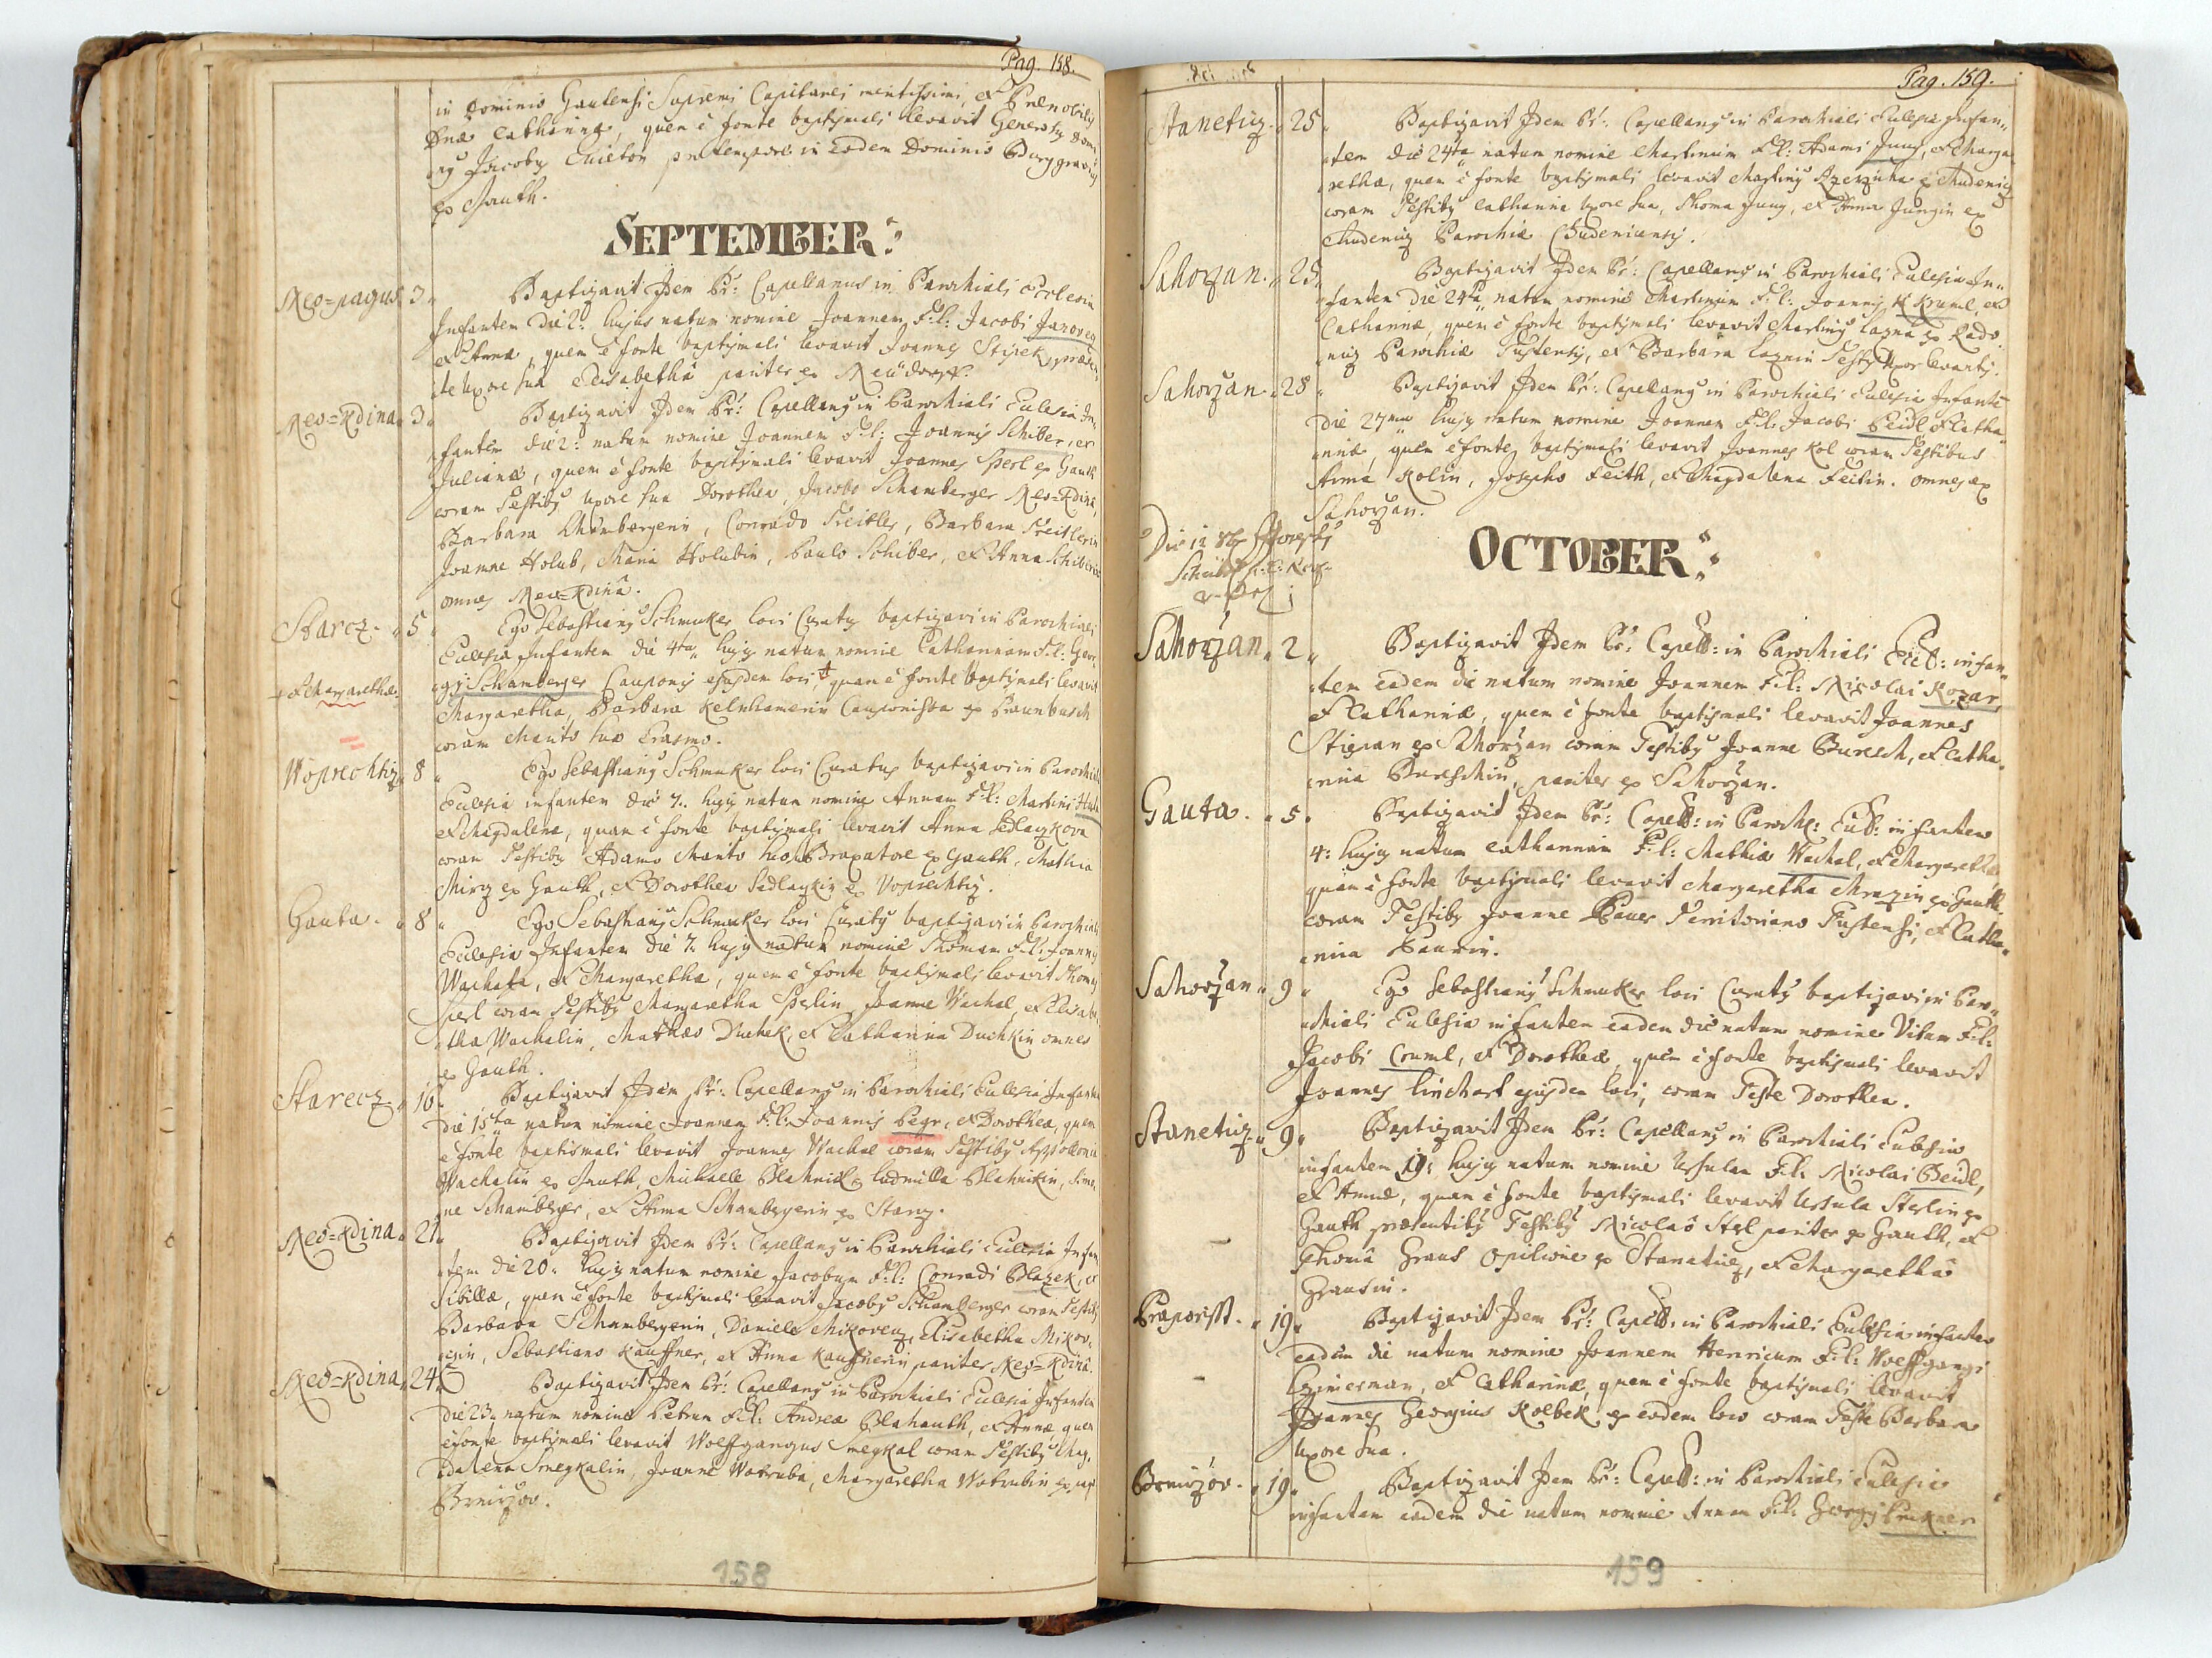 Pag. 158.
in Dominio Gautensi Supremi Capitanei meritissimi, et Prænobilis
Dnæ Catharinæ, quem è fonte baptismali levavit Generosus Domi
Jacobus pro tempore in eodem Dominio Burggravius
ex Gauth.
SEPTEMBER.
Neo=pagus 3 Baptizavit Idem Pr: Capellanus in Parochiali Ecclesia
Infantem die 2: hujus natum nomine Joannem F:l: Jacobi Janovec
et Annæ, quem è fonte baptismali levavit Joannes Stipek, præsen
te Uxore sua Elisabetha pariter ex Neüdorff.
Neo=Rdina 3 Baptizavit Idem Pr: Capellanus in Parochiali Ecclesia In
fantem die 2: natum nomine Joannem F:l: Joannis Schiber, et
Julianæ, quem è fonte baptismali levavit Joannes Sperl ex Gauth
coram Testibus Uxore sua Dorothea, Jacobo Schamberger Neo=Rdina,
Barbara Schambergerin, Conrado Treitler, Barbara Treitlerin
Joanne Holub, Maria Holubin, Paulo Schiber, et Anna Schiberin
omnes Neo=Rdina.
Starcz 5 Ego Sebastianus Schmuker loci Curatus baptizavi in Parochiali
Ecclesia Infantem die 4ta hujus natam nomine Catharinam F:l: Geor
gij Schamberger Cauponis ejusdem loci, + quam è fonte baptismali levavit
+ et Margarethæ
Margaretha, Barbara Kelnhamerin Cauponissa ex Braunbusch
coram Marito suo Erasmo.
Woprechtiz 8 Ego Sebastianus Schmuker loci Curatus baptizavi in Parochiali
Ecclesia infantem die 7. hujus natam nomine Annam F:l: Martini
et Magdalenæ, quam è fonte baptismali levavit Anna Sedlaczkova
coram Testibus Adamo Marito suo Braxatore ex Gauth, Mathia
ex Gauth, et Dorothea Sedlaczkin ex Voprechtiz.
Gauta 8 Ego Sebastianus Schmuker loci Curatus baptizavi in Parochiali
Ecclesia Infantem die 7. hujus natum nomine Thomam F:l: Joannis
Wachala, et Margaretha, quem è fonte baptismali levavit Thomas
Sperl coram Testibus Margaretha Sperlin, Joanne Wachal, et Elisabe
tha Wachalin, Matthæo Duchek, et Catharina Duchkin omnes
ex Gauth.
Starecz 16 Baptizavit Idem Pr: Capellanus in Parochiali Ecclesia Infantem
die 15ta natum nomine Joannem F:l: Joannis Begr, et Dorothea, quem
è fonte baptismali levavit Joannes Wachal coram Testibus Apollonia
Wachalin ex Gauth, Michaele Blahnik, Ludmilla Blahnikin, Simo
ne Schamberger, et Anna Schambergerin ex Starcz.
Neo=Rdina 21 Baptizavit Idem Pr: Capellanus in Parochiali Ecclesia Infan
tem die 20. hujus natum nomine Jacobum F:l: Conradi Blazek, et
Sibillæ, quem è fonte baptismali levavit Jacobus Schamberger coram Testibus
Barbara Schambergerin, Daniele Mikovecz, Elisabetha Mikov
ezin, Sebastiano Kauffner, et Anna Kauffnerin pariter Neo=Rdina.
Neo=Rdina 24 Baptizavit Idem Pr: Capellanus in Parochiali Ecclesia Infantem
die 23. natum nomine Petrum F:l: Andreæ Blahauth, et Annæ, quem
è fonte baptismali levavit Wolffgangus Smegkal coram Testibus Mag
dalena Smegkalin, Joanne Wotruba, Margaretha Wotrubin ex
Brnirzov.
158
Pag. 159.
Stanetiz 25 Baptizavit Idem Pr: Capellanus in Parochiali Ecclesia Infan
tem die 24ta natum nomine Martinum F:l: Adami Jung, et Marga
rethæ, quem è fonte baptismali levavit Martinus ex Chudeniz
coram Testibus Catharina Uxore sua, Thoma Jung, et Anna Jungin ex
Chudeniz Parochiæ Chudenicensis.
Sahorzan 25 Baptizavit Idem Pr: Capellanus in Parochiali Ecclesia In
fantem die 24ta natum nomine Martinum F:l: Joannis Kruml, et
Catharinæ, quem è fonte baptismali levavit Martinus Lazna ex Rado
niz Parochiæ Tustensis, et Barbara Laznin Testis Uxor levantis.
Sahorzan 28 Baptizavit Idem Pr: Capellanus in Parochiali Ecclesia Infantē
die 27ma hujus natum nomine Joannem F:l: Jacobi Beidl et Catha
rinæ, quem è fonte baptismali levavit Joannes Kol coram Testibus
Anna Kolin, Josepho Feith, et Magdalena Feitin. omnes ex
Sahorzan.
OCTOBER.
Sahorzan 2 Baptizavit Idem Pr: Capell: in Parochiali Eccl: infan
tem eadem die natum nomine Joannem F:l: Nicolai Kozar
et Catharinæ, quem è fonte baptismali levavit Joannes
Stipan ex Sahorzan coram Testibus Joanne Buresch, et Catha
rina Bureschin, pariter ex Sahorzan.
Gauta 5 Baptizavit Idem Pr: Capell: in Paroch: Eccl: infantem
4: hujus natam Catharinam F:l: Mathiæ Wachal, et Margarethæ
quam è fonte baptismali levavit Margaretha Mrazin ex Gauth.
coram Testibus Joanne Bauer Territoriano Tustensi, et Catha
rina Baurin.
Sahorzan 9 Ego Sebastianus Schmuker loci Curatus baptizavi in Paro
chiali Ecclesia infantem eadem die natum nomine Vitum F:l:
Jacobi Cruml, et Dorotheæ, quem è fonte baptismali levavit
Joannes Linchart ejusdem loci, coram Teste Dorothea.
Stanetiz 9 Baptizavit Idem Pr: Capellanus in Parochiali Ecclesia
infantem hujus natam nomine Ursulam F:l: Nicolai Beidl,
et Annæ, quam è fonte baptismali levavit Ursula Sterlin ex
Gauth præsentibus Testibus Nicolaô Sterl pariter ex Gauth, et
Thoma Graus Opilione ex Stanetiz, et Margaretha
Grausin.
Praporisst 19 Baptizavit Idem Pr: Capell: in Parochiali Ecclesia infantem
eadem die natum nomine Joannem Henricum F:l: Wolffgangi
Czimerman, et Catharinæ, quem è fonte baptismali levavit
Joannes Georgius Kolbek ex eodem loco coram Teste Barbara
Uxore sua.
Brnirzov 19 Baptizavit Idem Pr: Capell: in Parochiali Ecclesia
infantem eadem die natam nomine Annam F:l: Georgij Prukner
159